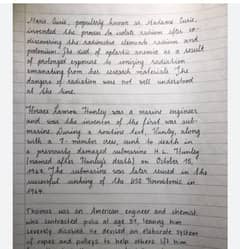 Marie Curie, popularly known as Madame Curie,
invented the process to isolate radium after co-
discovering the radioactive elements radium and
polonium. She died of aplastic anemia as a result
of prolonged exposure to ionizing radiation
emanating from her research materials. The
dangers of radiation was not well understood
at the time.
Horace Lawson Hunley was a marine engineer
and was the inventor of the first war sub-
marine. During a routine test, Hunley, along
with a 7-member crew, sunk to death in
a previously damaged submarine H. L. Hunley
(named after Hunley's death) on October 15,
The submarine was later reused in the
successful sinking of the USS Housatonic in
Thomas was an American engineer and chemist
who contracted polio at age 51, leaving him
severely disabled. He devised an elaborate system
of ropes and pulleys to help others lift him